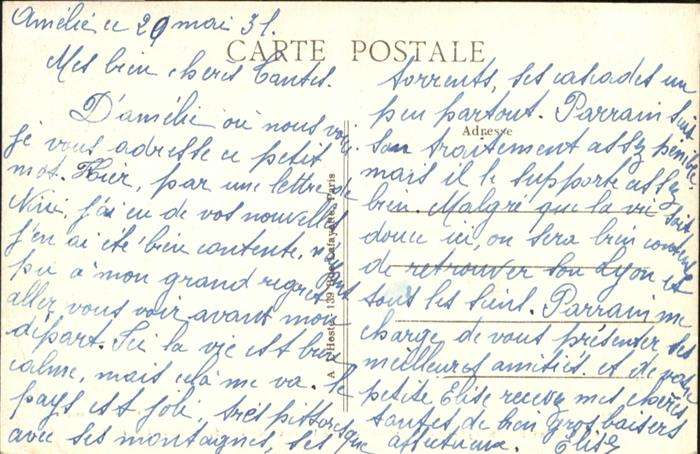 Amélie ce 29 mai 31.
CARTE POSTALE
Mes bien chères Tantes.
D'amélie où nous
je vous adresse ce petit
mot. Hier, par une lettre de
j'ai eu de vos nouvelles
j'en ai été bien contente.
pu à mon grand regret
aller vous voir avant mon
départ. Ici la vie est bien
calme, mais celà me va. Le
pays est joli, très pittoresque
avec ses montagnes, ses
torrents, ses cascades un
peu partout. Parrain suit
Adresse
son traitement assez pénible
mais il le supporte assez
bien. Malgré que la vie soit
douce ici, on sera bien content
de retrouver son Lyon et
tous les siens. Parrain me
charge de vous présenter ses
meilleures amitiés. et de votre
petite Elise recevez mes chères
tantes de bien gros baisers
affectueux. Elise
A. L'Hoste, 139 Rue Lafayette, Paris